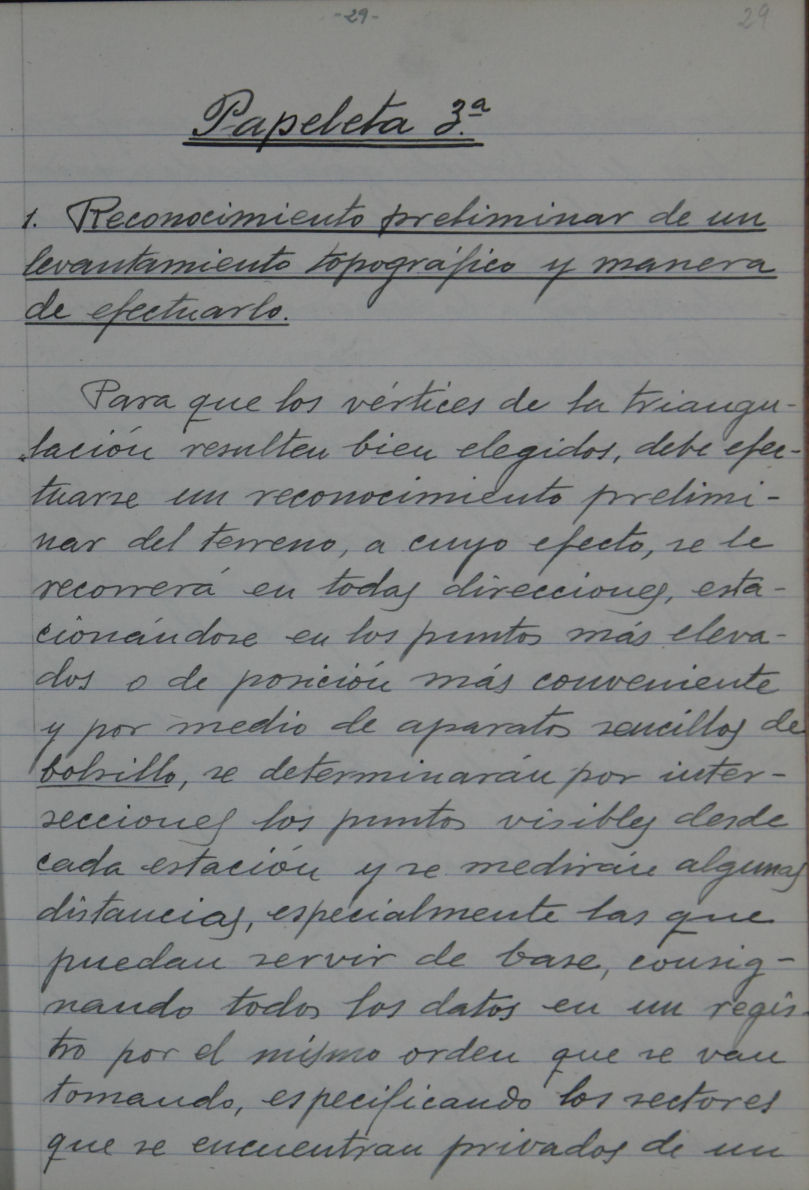 -29-
29
Papeleta 3.ª
1. Reconocimiento preliminar de un
levantamiento topográfico y manera
de efectuarlo.
Para que los vértices de la triangu-
lación resulten bien elegidos, debe efec-
tuarse un reconocimiento prelimi-
nar del terreno, a cuyo efecto, se le
recorrerá en todas direcciones, esta-
cionándose en los puntos más eleva-
dos o de posición más conveniente
y por medio de aparatos sencillos de
bolsillo, se determinarán por inter-
secciones los puntos visibles desde
cada estación y se medirán algunas
distancias, especialmente las que
puedan servir de base, consig-
nando todos los datos en un regis-
tro por el mismo orden que se van
tomando, especificando los sectores
que se encuentran privados de un